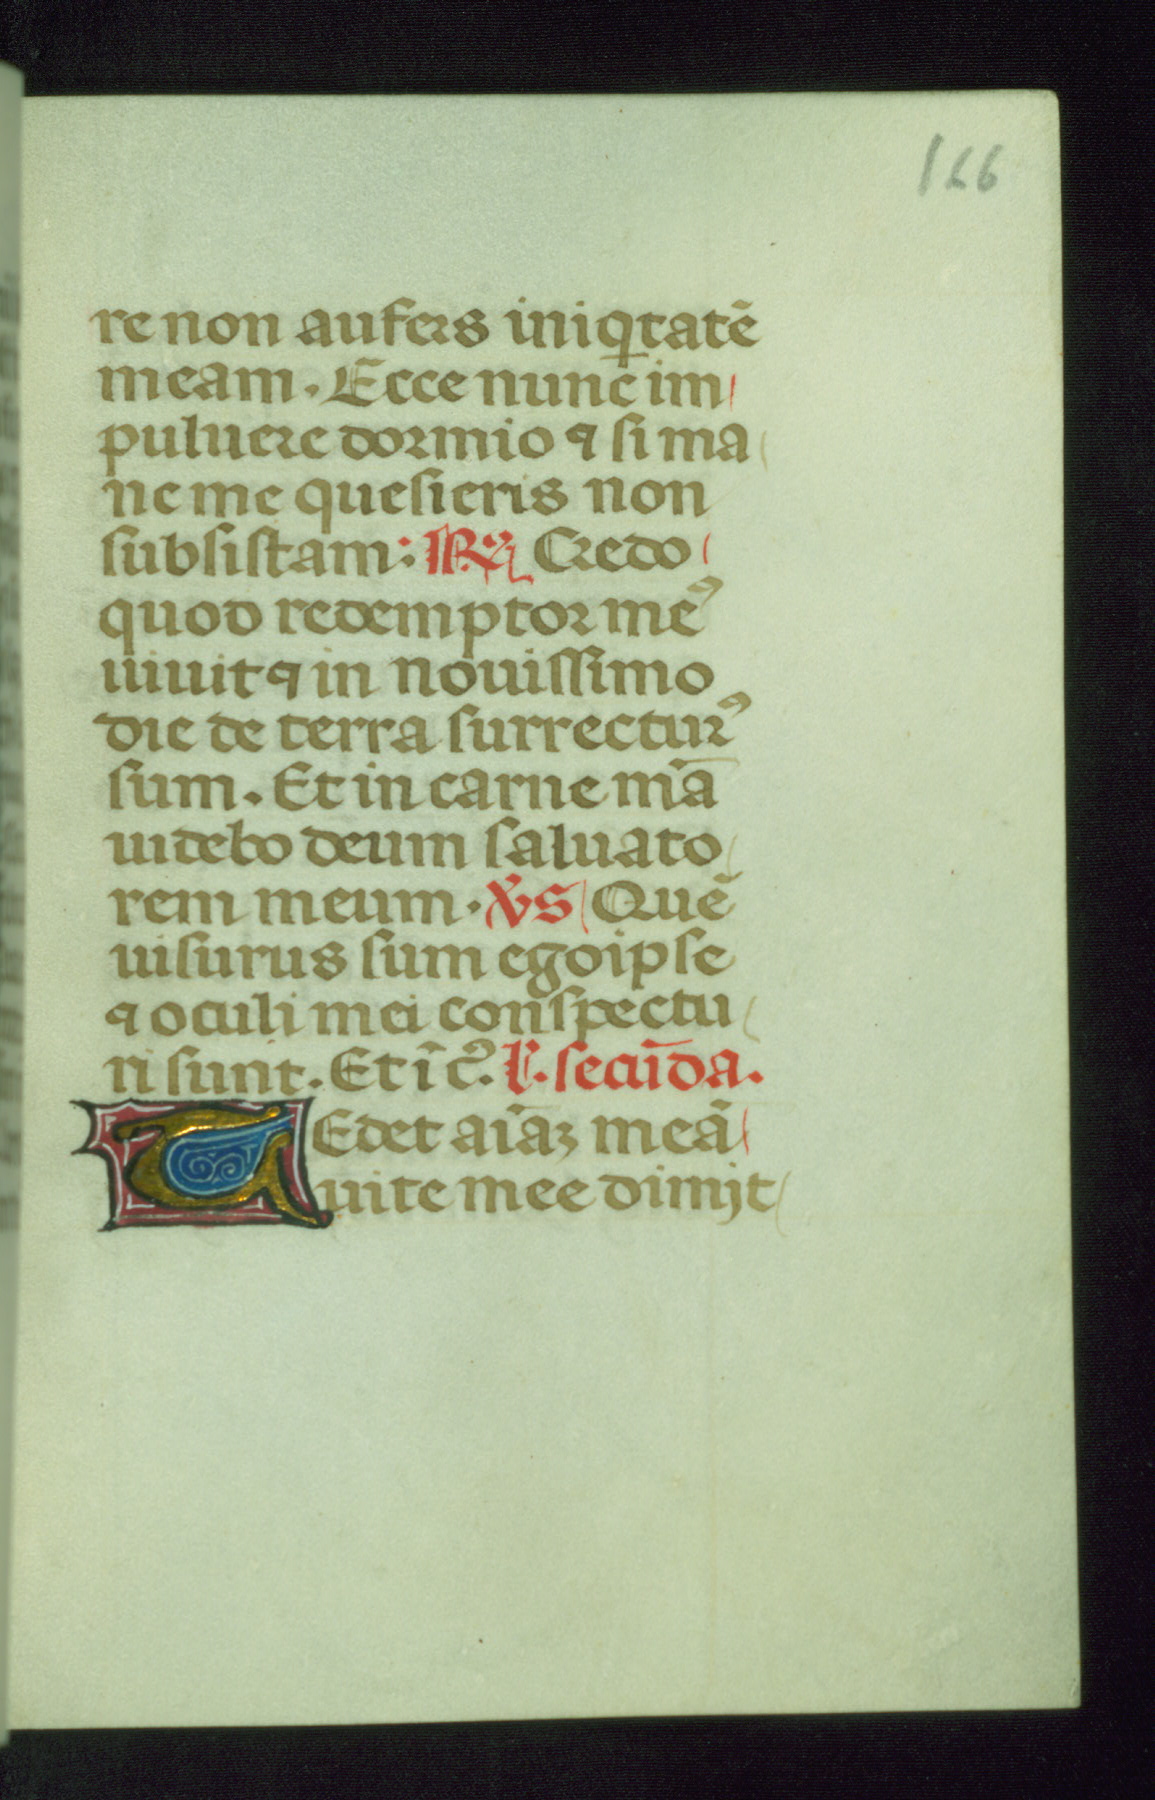 166
re non aufers iniqtatē
meam. Ecce nunc im
puluere dormio ⁊ si ma
ne me quesieris non
subsistam: R̷ Credo
quod redemptor meꝰ
uiuit ⁊ in nouissimo
die de terra surrecturꝰ
sum. Et in carne mēa
uidebo deum saluato
rem meum. V̷s Quē
uisurus sum ego ipse
⁊ oculi mei conspectu
ri sunt. Et ī cꝰ. L. secūda.
TEdet aīaꝫ meā
uite mee dimijt